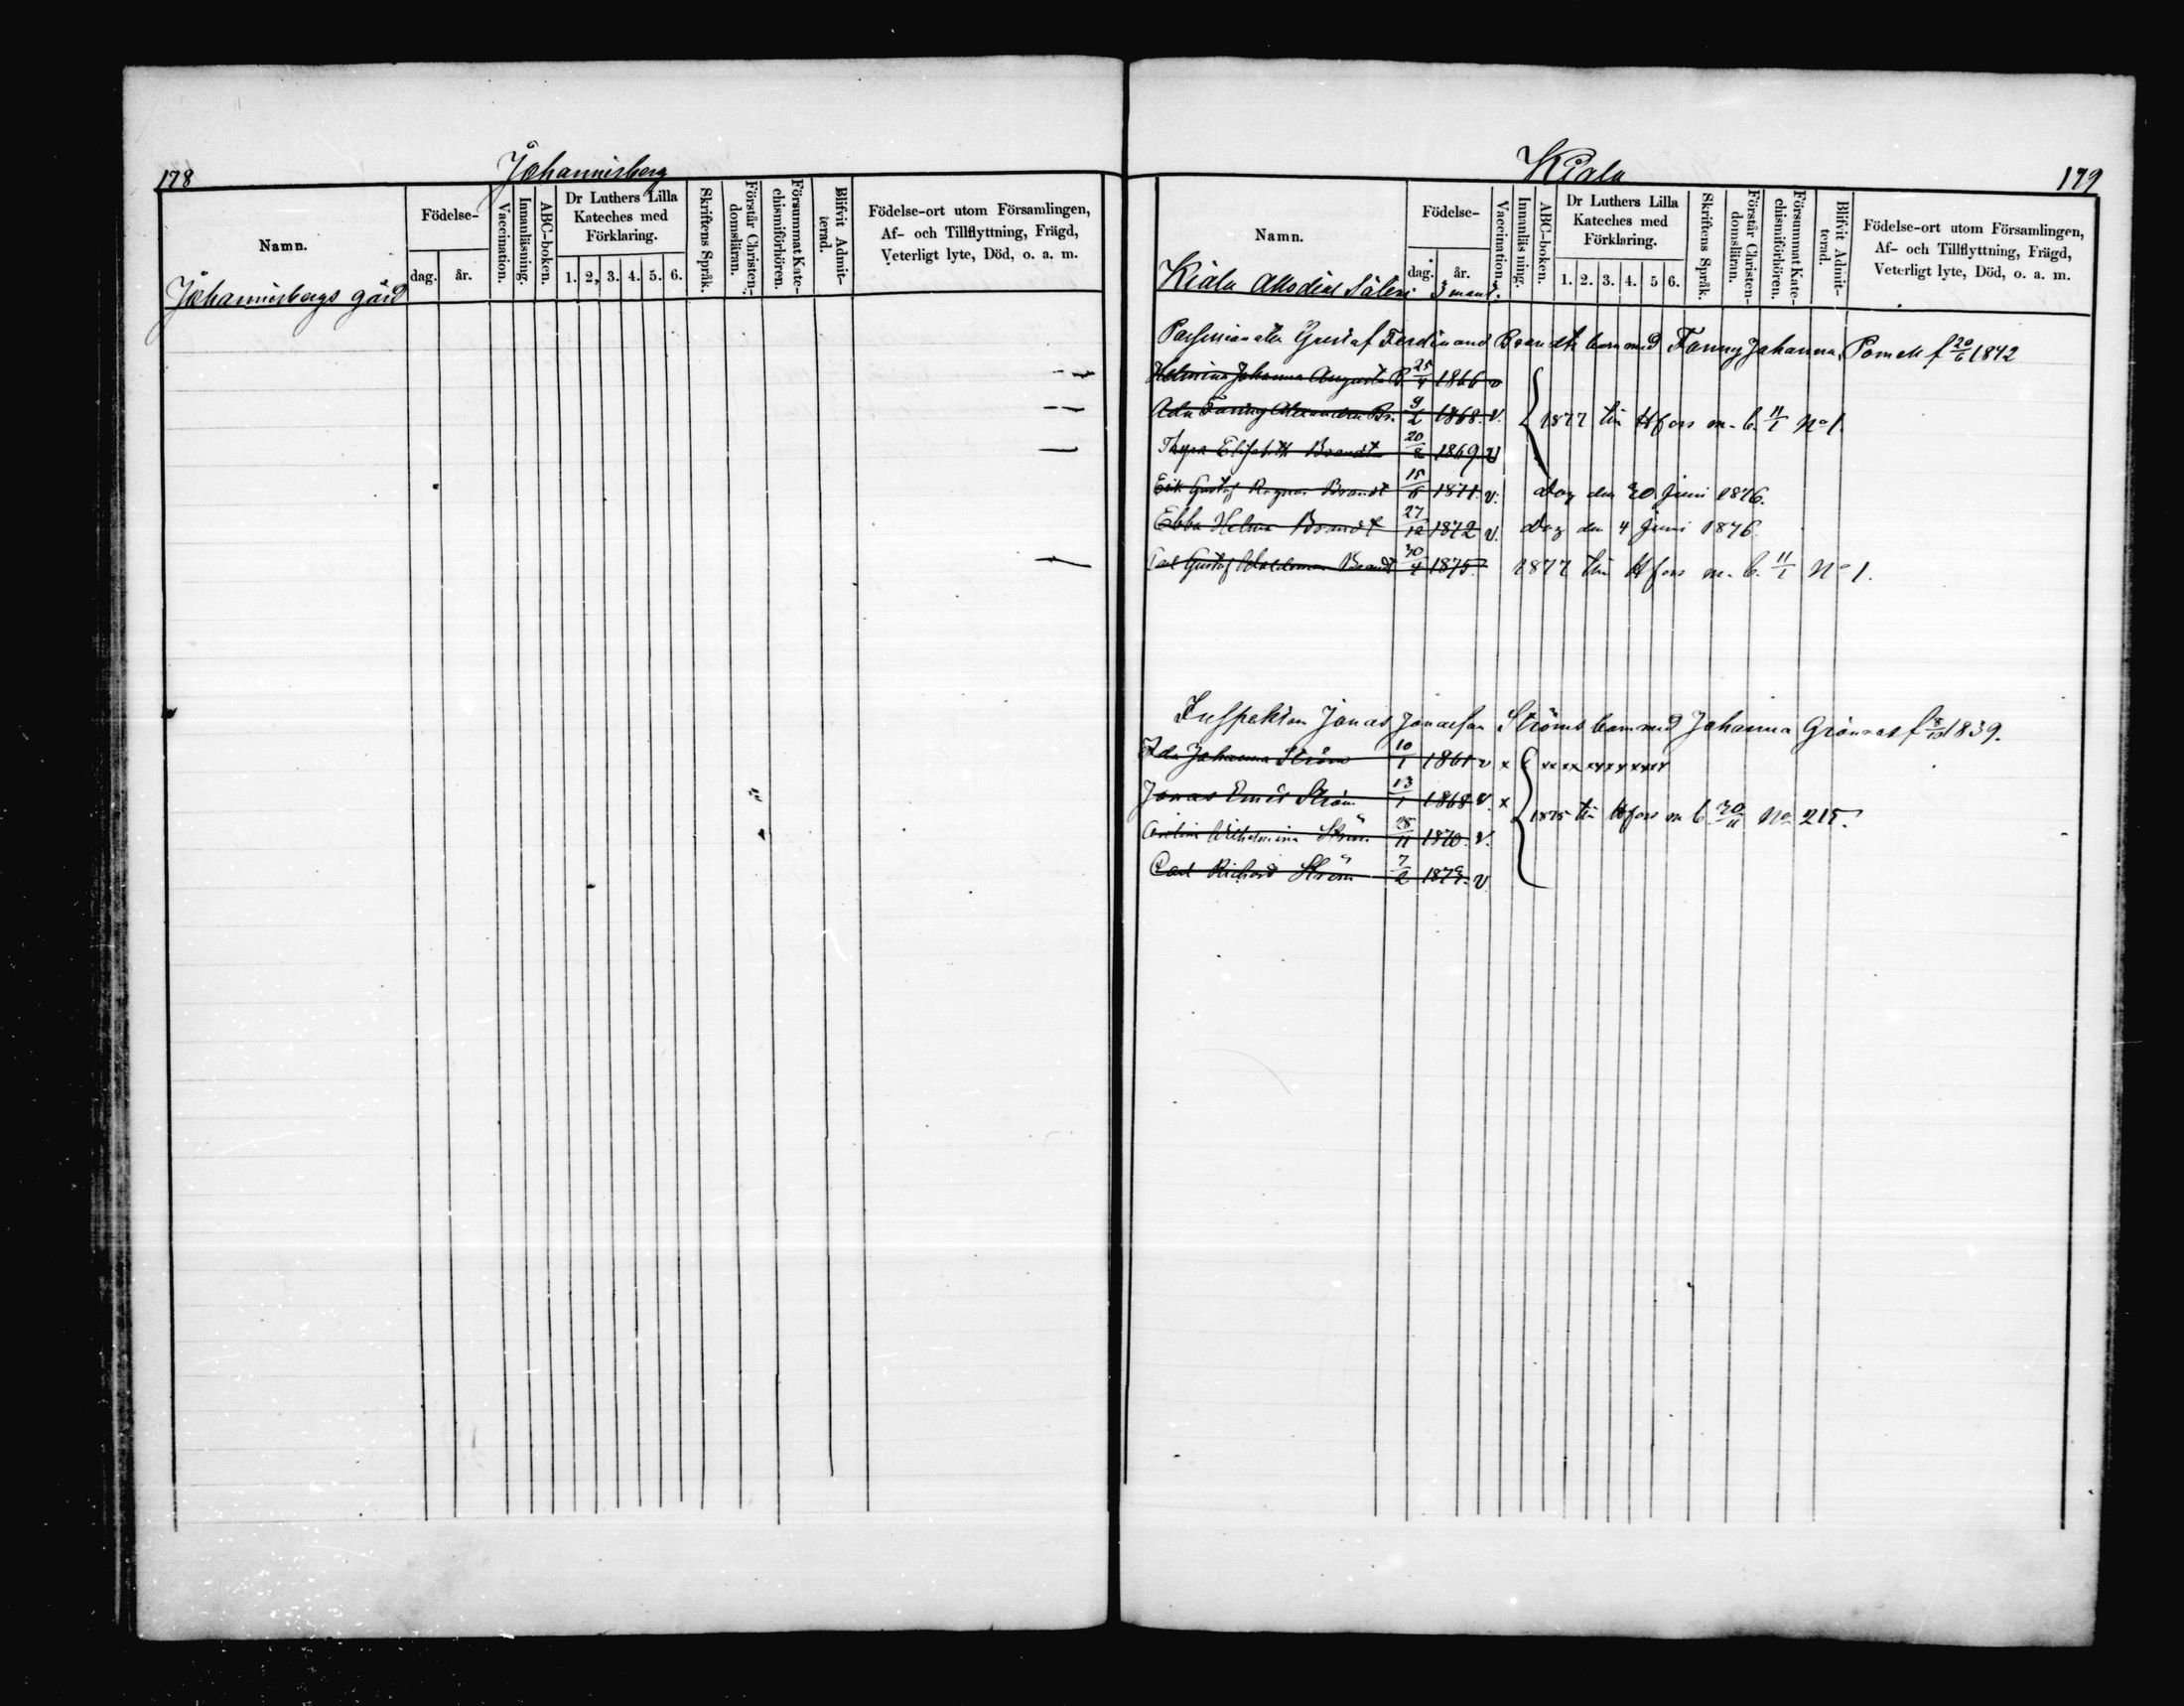 178
Johannisberg
Namn.
Födelse-
dag. år.
Vaccination.
Innanläsning.
ABC-boken.
Dr Luthers Lilla Kateches med Förklaring.
1. 2, 3. 4. 5. 6.
Skriftens Språk.
Förstår Christen-domsläran.
Försummat Kate-chismiförhören.
Blifvit Admit-terad.
Födelse-ort utom Församlingen,
Af- och Tillflyttning, Frägd,
Veterligt lyte, Död, o. a. m.
Johannisbergs gård
Kiala
179
Namn.
Födelse-
dag. år.
Vaccination.
Innanläs ning.
ABC-boken.
Dr Luthers Lilla Kateches med Förklaring.
1. 2. 3. 4. 5 6.
Skriftens Språk.
Förstår Christen-domsläran.
Försummat Kate-chismiförhören.
Blifvit Admit-terad.
Födelse-ort utom Församlingen,
Af- och Tillflyttning, Frägd,
Veterligt lyte, Död, o. a. m.
Kiala Allodial Säteri 3 mant.
Possessionaten Gustaf Ferdinand Brandts barn med Fanny Johanna f 20/6 1842
Helmina Johanna Augusta B. 25/4 1866 v
Ada Fanny Alexandra Br. 9/2 1868. v.
1877 till Hfors m. b. 11/1 No 1.
Thyra Elisabeth Brandt 20/2 1869. v
Erik Gustaf Ragnar Brandt 15/6 1871. v. dog den 20 Juni 1876.
Ebba Helena Brandt 27/12 1872 v. dog den 4 Juni 1876.
Carl Gustaf Waldemar Brandt 30/4 1875. 1877 till Hfors m. b. 11/1 No 1.
Inspektoren Jonas Jonasson Ströms barn med Johanna f 8/10 1839.
Ida Johanna Ström 10/1 1861 v x
Jonas Emil Ström 13/1 1868 v. x
1875 till Hfors m b 30/11 No 215.
Wilhelmina Ström 28/11 1870. v.
Carl Richard Ström 7/2 v.